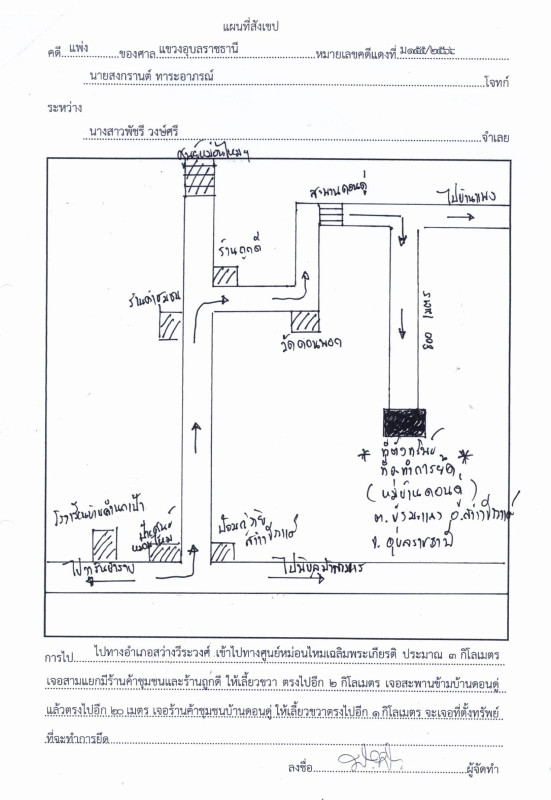 แผนที่สังเขป
คดี แพ่ง ของศาล แขวงอุบลราชธานี หมายเลขคดีแดงที่ ม๑๕๕/๒๕๖๖
นายสงกรานต์ ทาระอาภรณ์ โจทก์
ระหว่าง
นางสาวพัชรี วงษ์ศรี จำเลย
ศูนย์หม่อนไหมฯ
สะพานดอนดู่
ไปบ้านแพง
ร้านถูกดี
ร้านค้าชุมชน
วัดดอนพอก
๓๐๐ เมตร
* ที่ตั้งทรัพย์ *
ที่จะทำการยึด
(หมู่บ้านดอนดู่)
ต.บุ่งมะแลง อ.สว่างวีระวงศ์
จ.อุบลราชธานี
ป้ายศูนย์
หม่อนไหม
ป้อมกู้ภัย
สว่างวีระวงศ์
ไปวารินชำราบ
ไปพิบูลมังสาหาร
การไป ไปทางอำเภอสว่างวีระวงศ์ เข้าไปทางศูนย์หม่อนไหมเฉลิมพระเกียรติ ประมาณ ๓ กิโลเมตร
เจอสามแยกมีร้านค้าชุมชนและร้านถูกดี ให้เลี้ยวขวา ตรงไปอีก ๒ กิโลเมตร เจอสะพานข้ามบ้านดอนดู่
แล้วตรงไปอีก ๒๐ เมตร เจอร้านค้าชุมชนบ้านดอนดู่ ให้เลี้ยวขวาตรงไปอีก ๑ กิโลเมตร จะเจอที่ตั้งทรัพย์
ที่จะทำการยึด
ลงชื่อ ผู้จัดทำ